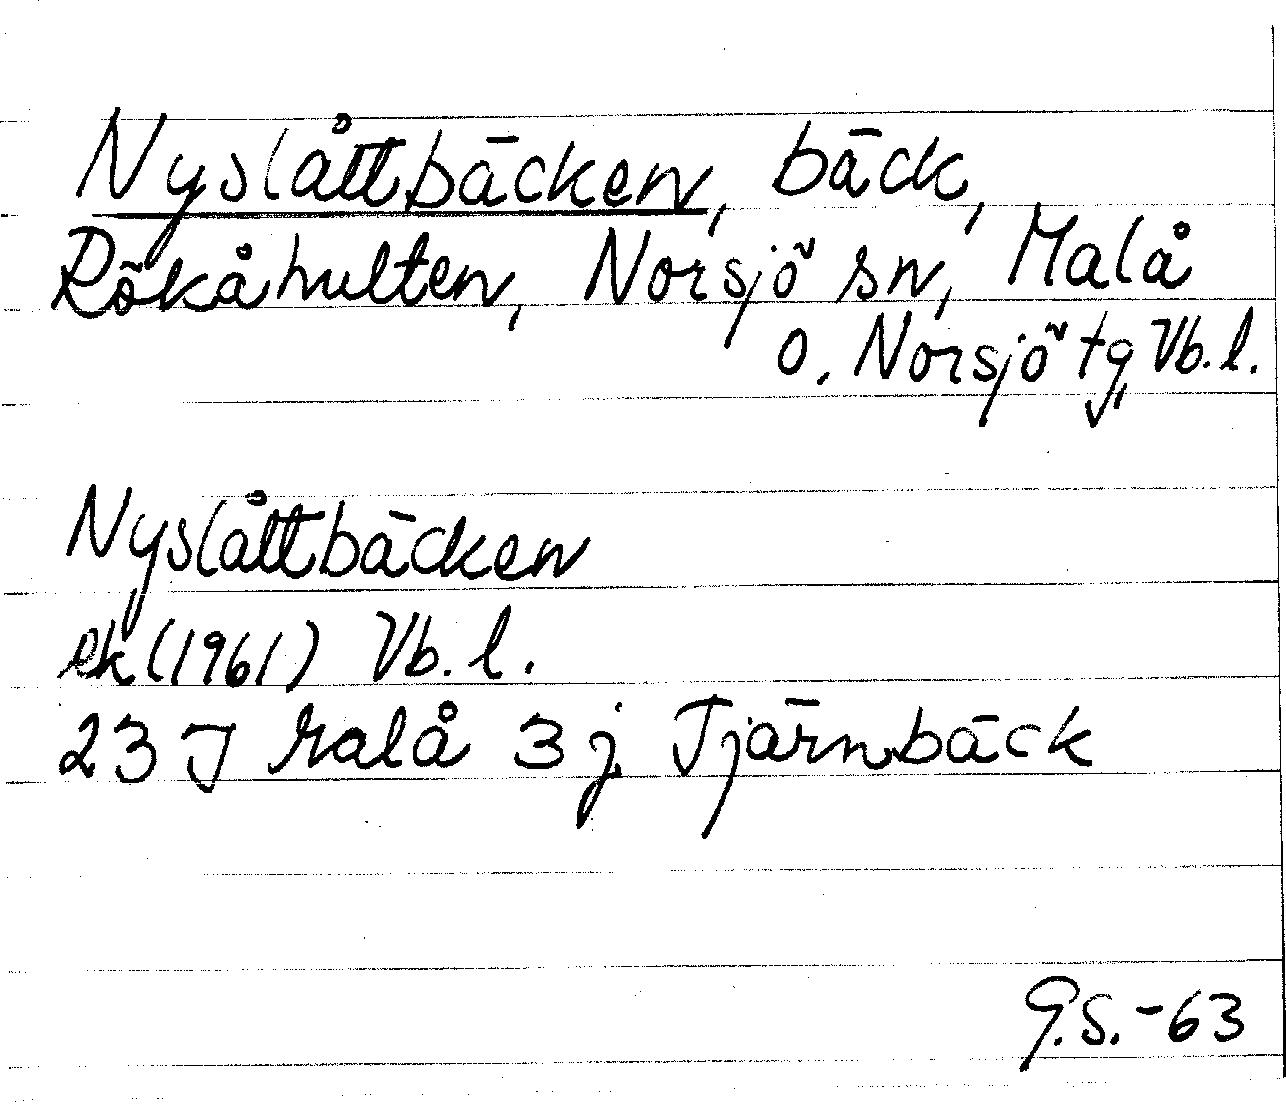 Nyslåttbäcken, bäck,
Rökåhulten, Norsjö sn, Malå
o. Norsjö tg, Vb. l.
Nyslåttbäcken
ek (1961) Vb. l.
23 J Malå 3 j, Tjärnbäck
G.S.-63